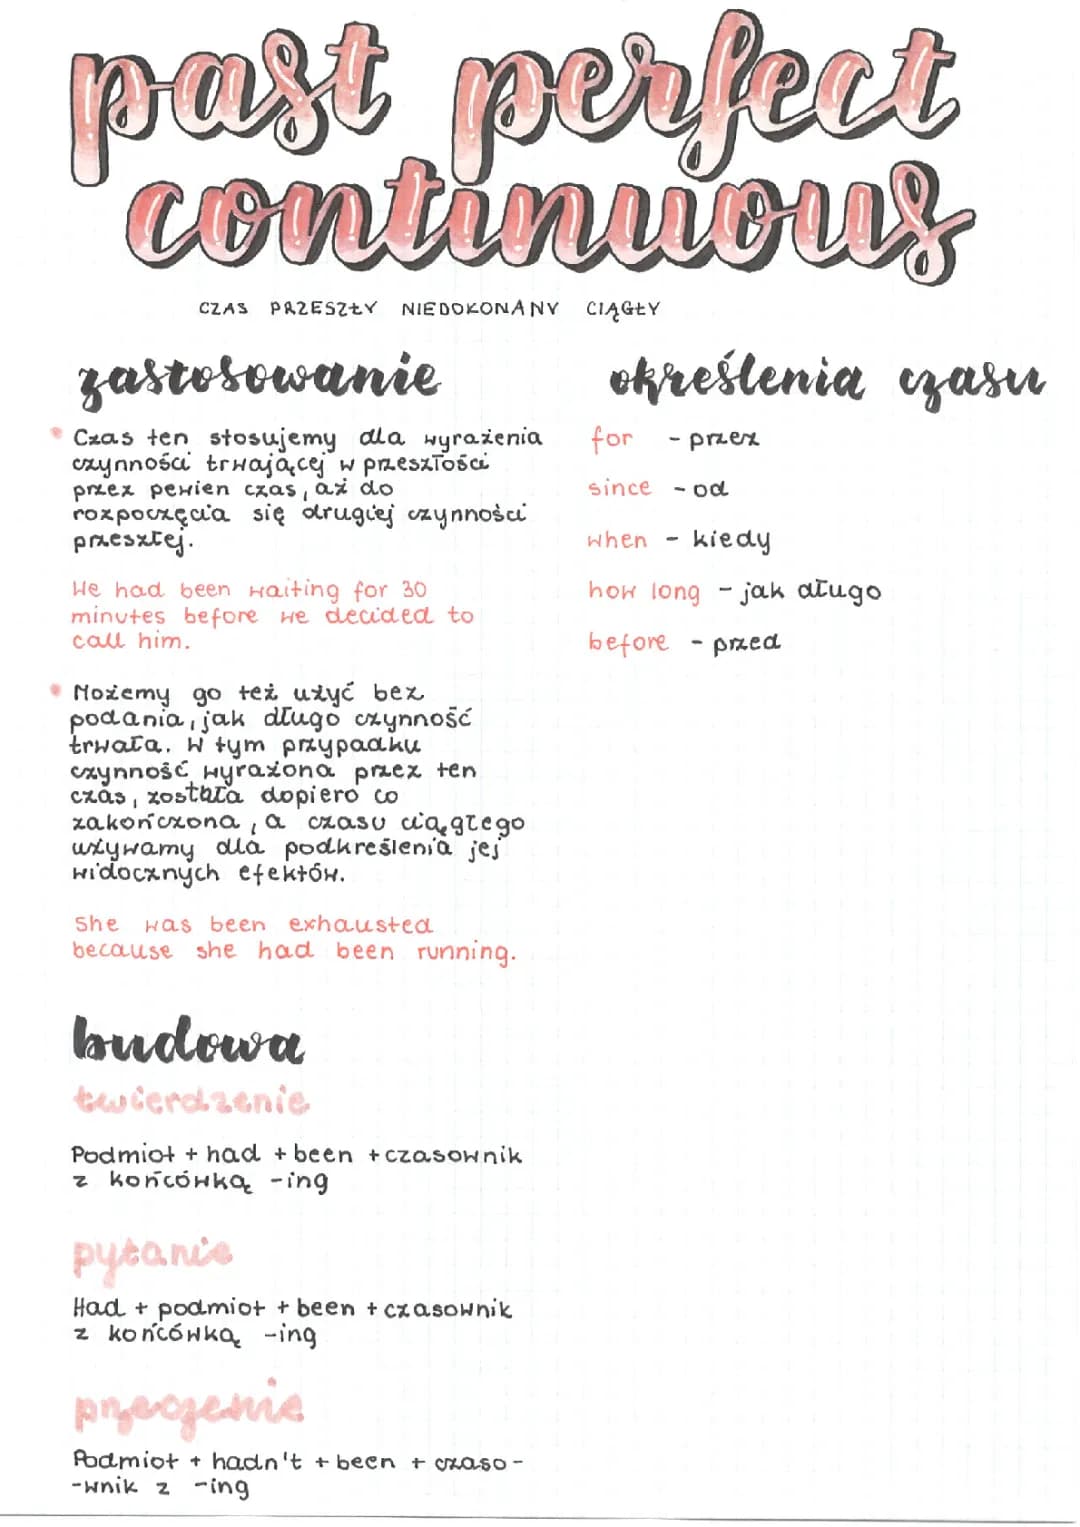 past perfect
continuous
CZAS PRZESZŁY NIEDOKONANY CIĄGŁY
zastosowanie
Czas ten stosujemy dla wyrażenia
czynności trwającej w przeszłości
przez pewien czas, aż do
rozpoczęcia się drugiej czynności
przeszłej.
We had been waiting for 30
minutes before we decided to
call him.
Możemy go też użyć bez
podania, jak długo czynność
trwała. W tym przypadku
czynność wyrażona przez ten
czas, została dopiero co
zakończona, a czasu ciągłego
używamy dla podkreślenia jej
widocznych efektów.
She was been exhausted
because she had been running.
budowa
twierdzenie
Podmiot + had + been + czasownik
z końcówką -ing
pytanie
Had + podmiot + been + czasownik
z końcówką -ing
przeczenie
Podmiot + hadn't + been + czaso-
-wnik z -ing
określenia czasu
for - przez
since - od
when - kiedy
how long - jak długo
before - przed